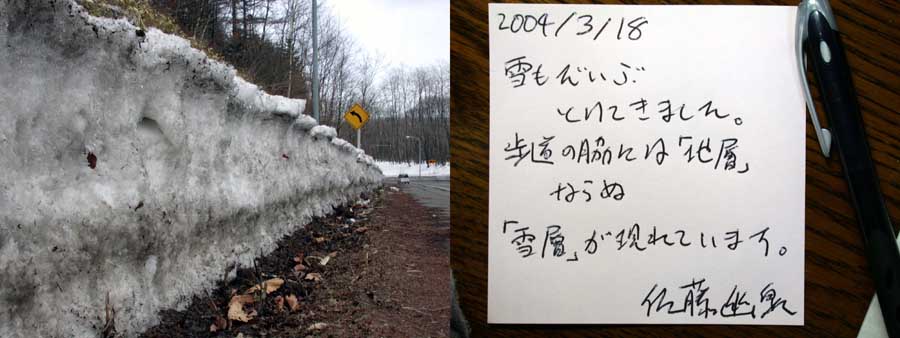 2004/3/18
雪もだいぶ
とけてきました。
歩道の脇には「地層」
ならぬ
「雪層」が現れています。
佐藤